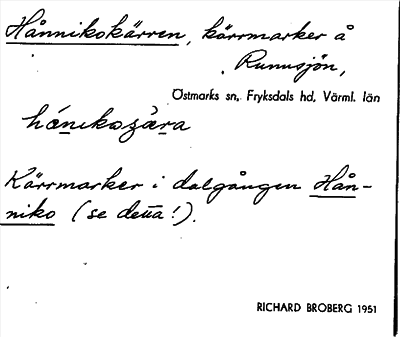 Hånnikokärren, kärrmarker å
Runusjön,
Östmarks sn, Fryksdals hd, Värml. län
Kärrmarker i dalgången Hån-
niko (se detta!).
RICHARD BROBERG 1951